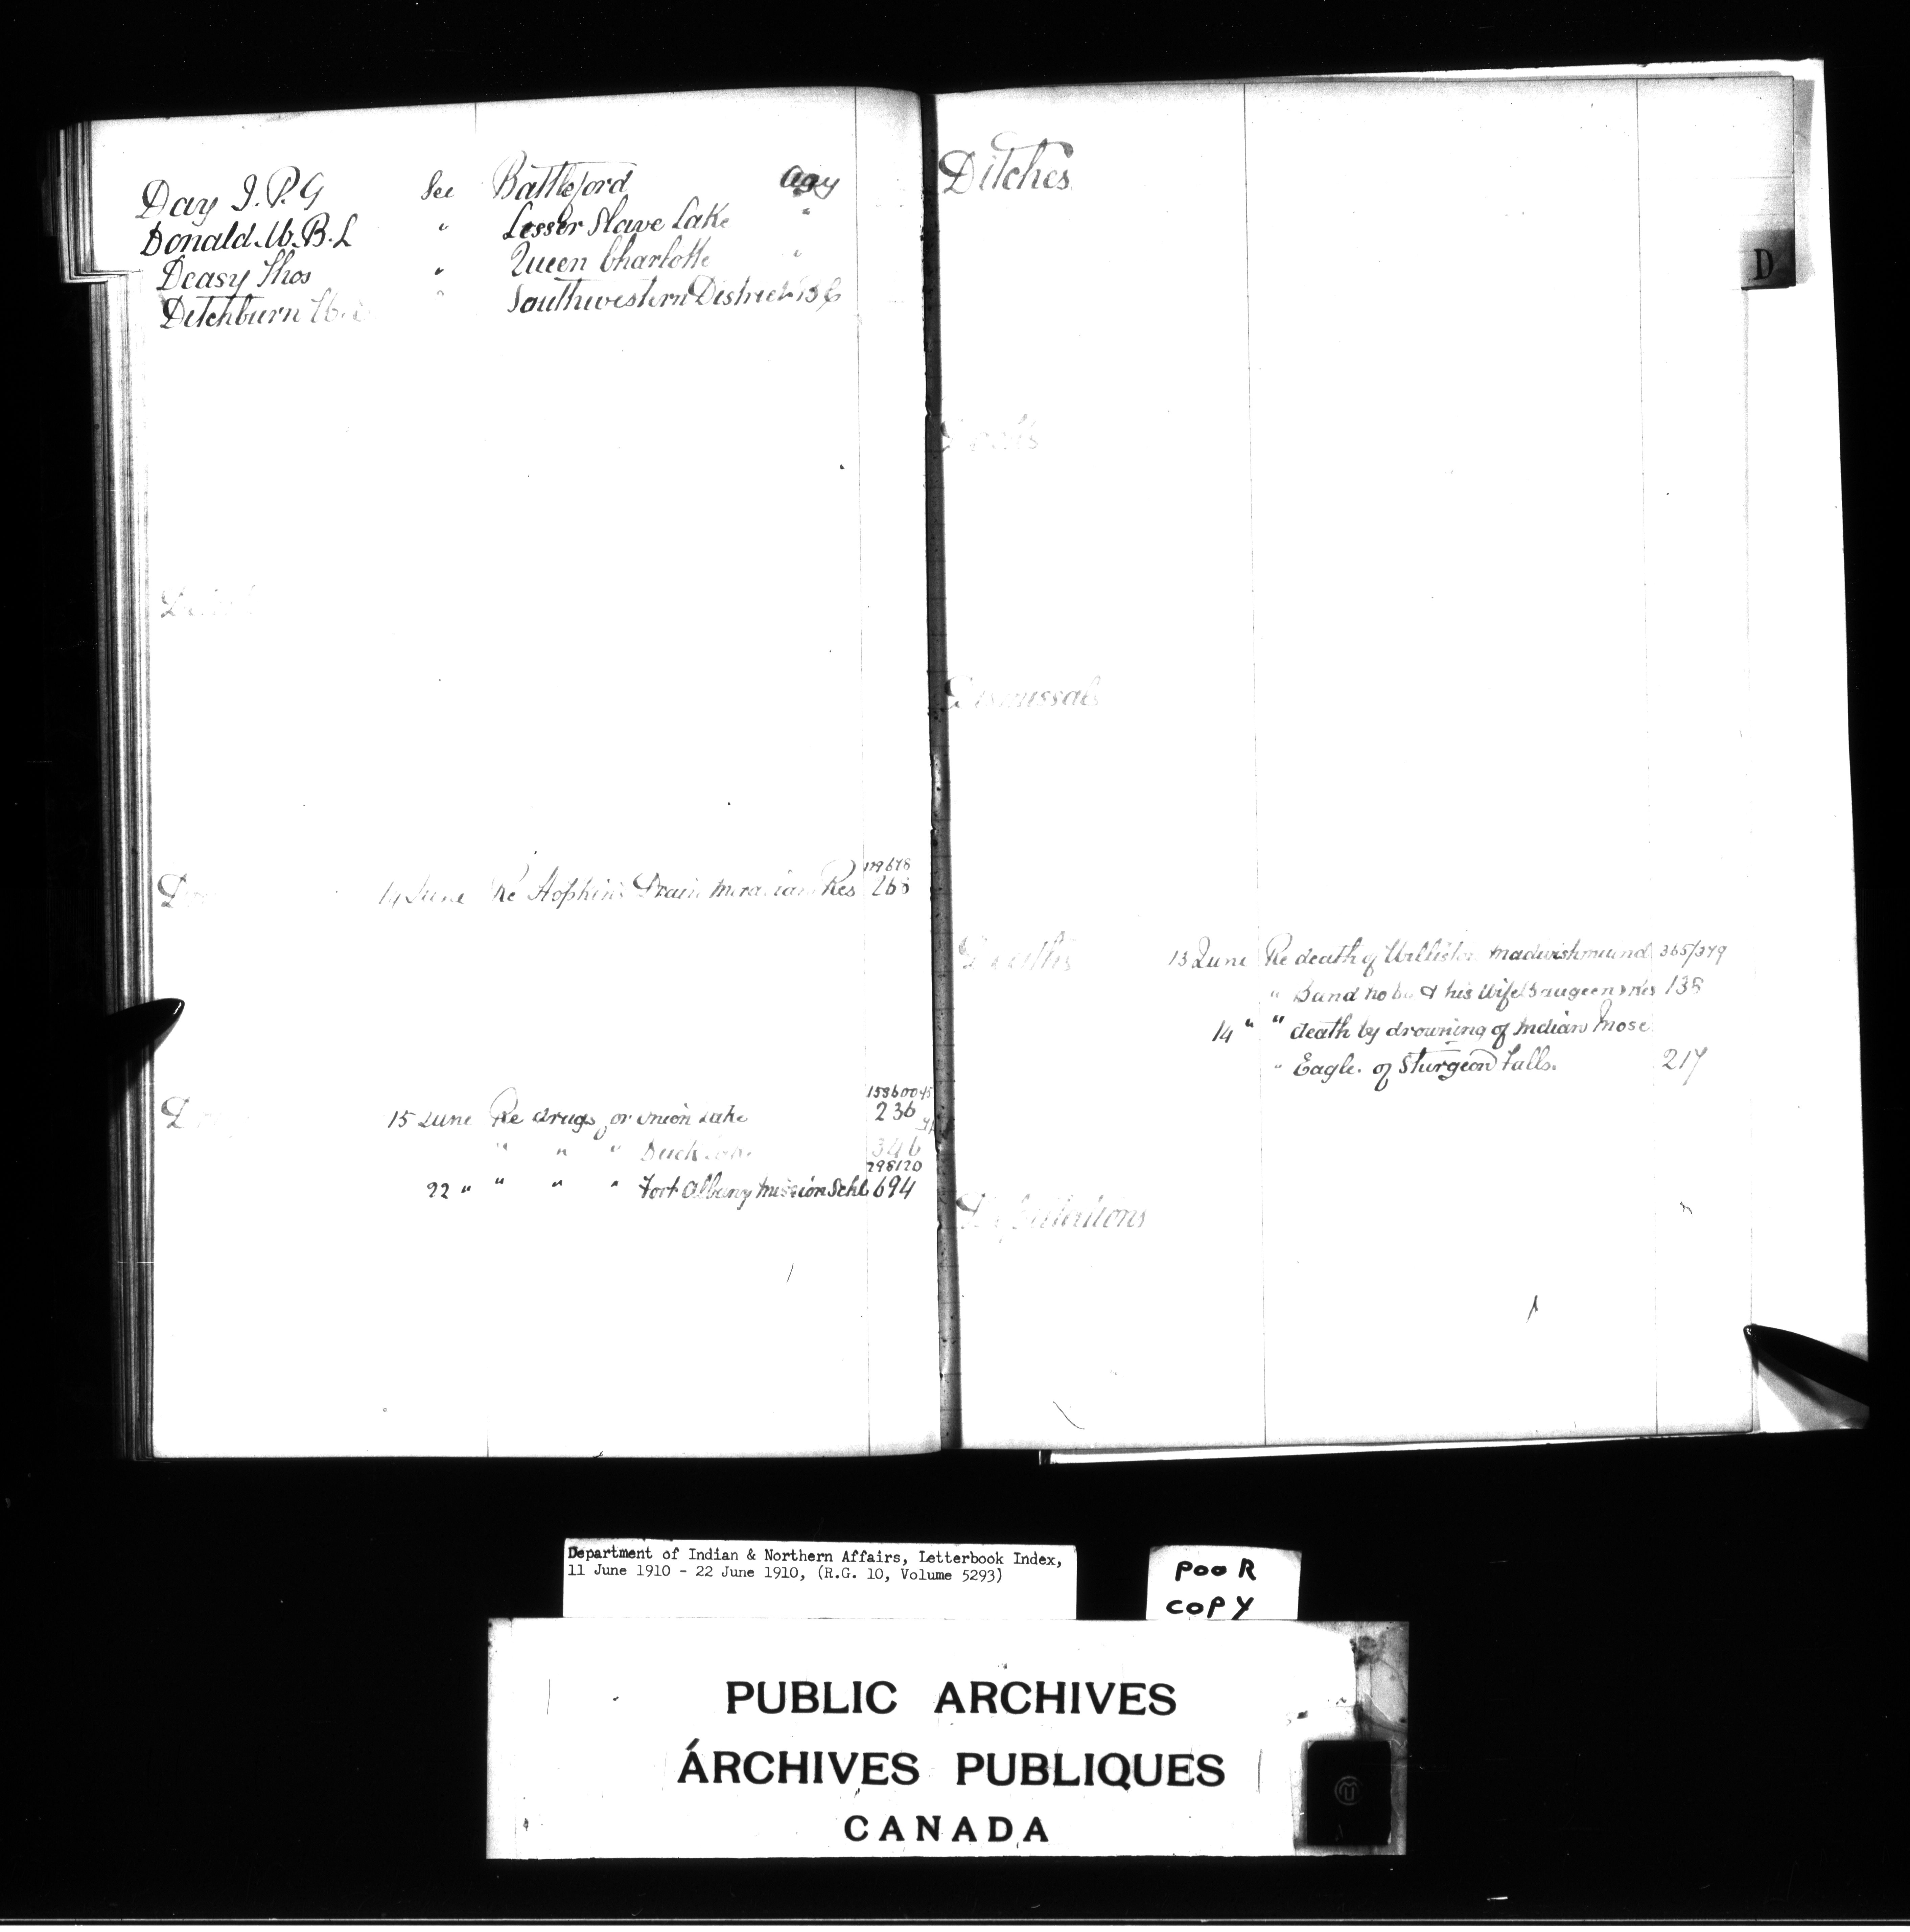 Day J. P. G See Battleford Agy
Donald W. B. L " Lesser Slave Lake "
Deasy Thos " Queen Charlotte "
Ditchburn W. " Southwestern District B C
14 June Re Hopkins Drain Moravian Res 179678 268
15 June Re drugs for Onion Lake 158600 236
" " " Duck 346
22 " " " " Fort Albany Mission Schl 298120 694
Ditches
D
Dismissals
Deaths 13 June Re death of Williston Madwishmind 365/379
" Band no & his Wife Saugeen Res 138
14 " " death by drowning of Indian Mose
" Eagle. of Sturgeon Falls. 217
Department of Indian & Northern Affairs, Letterbook Index,
11 June 1910 - 22 June 1910, (R.G. 10, Volume 5293)
POOR
COPY
PUBLIC ARCHIVES
ÁRCHIVES PUBLIQUES
CANADA